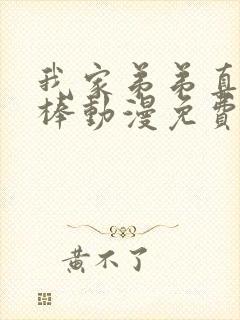 我家弟弟真
棒動漫免費
黃不了